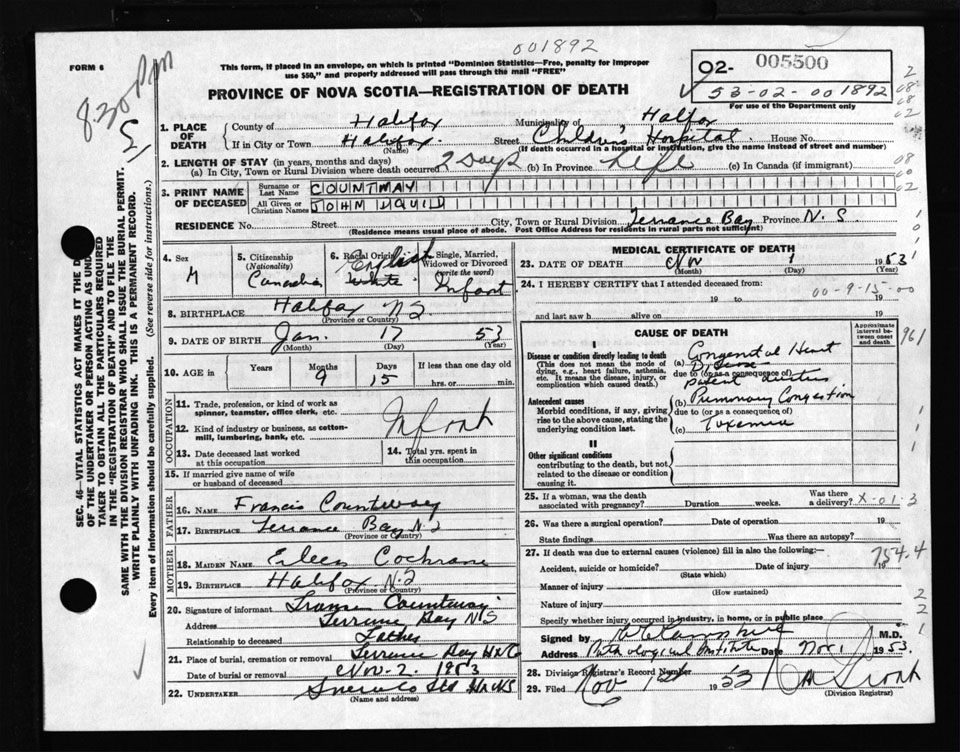 FORM 6
001892
This form, if placed in an envelope, on which is printed "Dominion Statistics—Free, penalty for improper
use $50," and properly addressed will pass through the mail "FREE"
02- 005500
53-02-001892
For use of the Department only
PROVINCE OF NOVA SCOTIA—REGISTRATION OF DEATH
8.30 PM
1. PLACE OF DEATH
County of Halifax Municipality of Halfax
If in City or Town Halifax Street Children's Hospital House No.
(Name) (If death occurred in a hospital or institution, give the name instead of street and number)
2. LENGTH OF STAY (in years, months and days)
(a) In City, Town or Rural Division where death occurred 2 Days (b) In Province Life (c) In Canada (if immigrant)
3. PRINT NAME OF DECEASED
Surname or Last Name COUNTWAY
All Given or Christian Names JOHN DAVID
RESIDENCE No. Street City, Town or Rural Division Terrance Bay Province N.S.
(Residence means usual place of abode. Post Office Address for residents in rural parts not sufficient)
4. Sex M
5. Citizenship (Nationality) Canadian
6. Racial Origin English White
Single, Married, Widowed or Divorced (write the word) Infant
8. BIRTHPLACE Halifax NS
(Province or Country)
9. DATE OF BIRTH Jan. 17 53
(Month) (Day) (Year)
10. AGE in Years Months 9 Days 15 If less than one day old
hrs. or min.
OCCUPATION
11. Trade, profession, or kind of work as spinner, teamster, office clerk, etc.
12. Kind of industry or business, as cotton-mill, lumbering, bank, etc. Infant
13. Date deceased last worked at this occupation
14. Total yrs. spent in this occupation
15. If married give name of wife or husband of deceased
FATHER
16. NAME Francis Countway
17. BIRTHPLACE Terrance Bay NS
(Province or Country)
MOTHER
18. MAIDEN NAME Eileen Cochrane
19. BIRTHPLACE Halifax N.S
(Province or Country)
20. Signature of informant Countway
Address Terrence Bay NS
Relationship to deceased Father
21. Place of burial, cremation or removal Terrence Bay
Date of burial or removal Nov-2. 1953
22. UNDERTAKER
(Name and address)
MEDICAL CERTIFICATE OF DEATH
23. DATE OF DEATH Nov 1 1953
(Month) (Day) (Year)
24. I HEREBY CERTIFY that I attended deceased from:
19 to 19
00-9-15-00
and last saw h alive on 19
CAUSE OF DEATH
Approximate interval between onset and death
I
Disease or condition directly leading to death
(This does not mean the mode of dying, e.g., heart failure, asthenia, etc. It means the disease, injury, or complication which caused death.)
(a) Congenital Heart Disease
due to (or as a consequence of)
patent ductus
Antecedent causes
Morbid conditions, if any, giving rise to the above cause, stating the underlying condition last.
(b) Pulmonary Congestion
due to (or as a consequence of)
(c) Toxemia
II
Other significant conditions
contributing to the death, but not related to the disease or condition causing it.
25. If a woman, was the death associated with pregnancy? Duration weeks. Was there a delivery? X-01-3
26. Was there a surgical operation? Date of operation 19
State findings Was there an autopsy?
27. If death was due to external causes (violence) fill in also the following:—
754.4
Accident, suicide or homicide? Date of injury 19
(State which)
Manner of injury
(How sustained)
Nature of injury
Specify whether injury occurred in industry, in home, or in public place
Signed by M.D.
Address Pathological Institute Date Nov. 1 1953.
28. Division Registrar's Record Number
29. Filed Nov 1st 1953
(Division Registrar)
SEC. 46—VITAL STATISTICS ACT MAKES IT THE D
OF THE UNDERTAKER OR PERSON ACTING AS UND
TAKER TO OBTAIN ALL THE PARTICULARS REQUIRED
IN THE "REGISTRATION OF DEATH" AND TO FILE THE
SAME WITH THE DIVISION REGISTRAR WHO SHALL ISSUE THE BURIAL PERMIT.
WRITE PLAINLY WITH UNFADING INK. THIS IS A PERMANENT RECORD.
Every item of information should be carefully supplied. (See reverse side for instructions.)